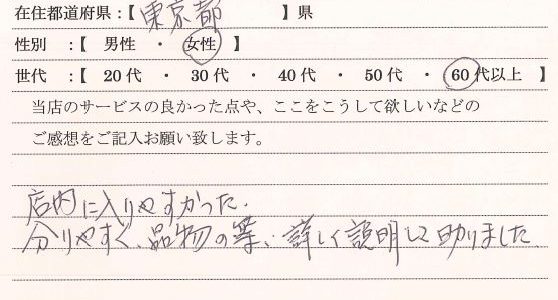 在住都道府県:【 東京都 】県
性別 :【 男性 ・ 女性 】
世代 :【 20代 ・ 30代 ・ 40代 ・ 50代 ・ 60代以上 】
当店のサービスの良かった点や、ここをこうして欲しいなどの
ご感想をご記入お願い致します。
店内に入りやすかった.
分りやすく、品物の等、詳しく説明して助りました